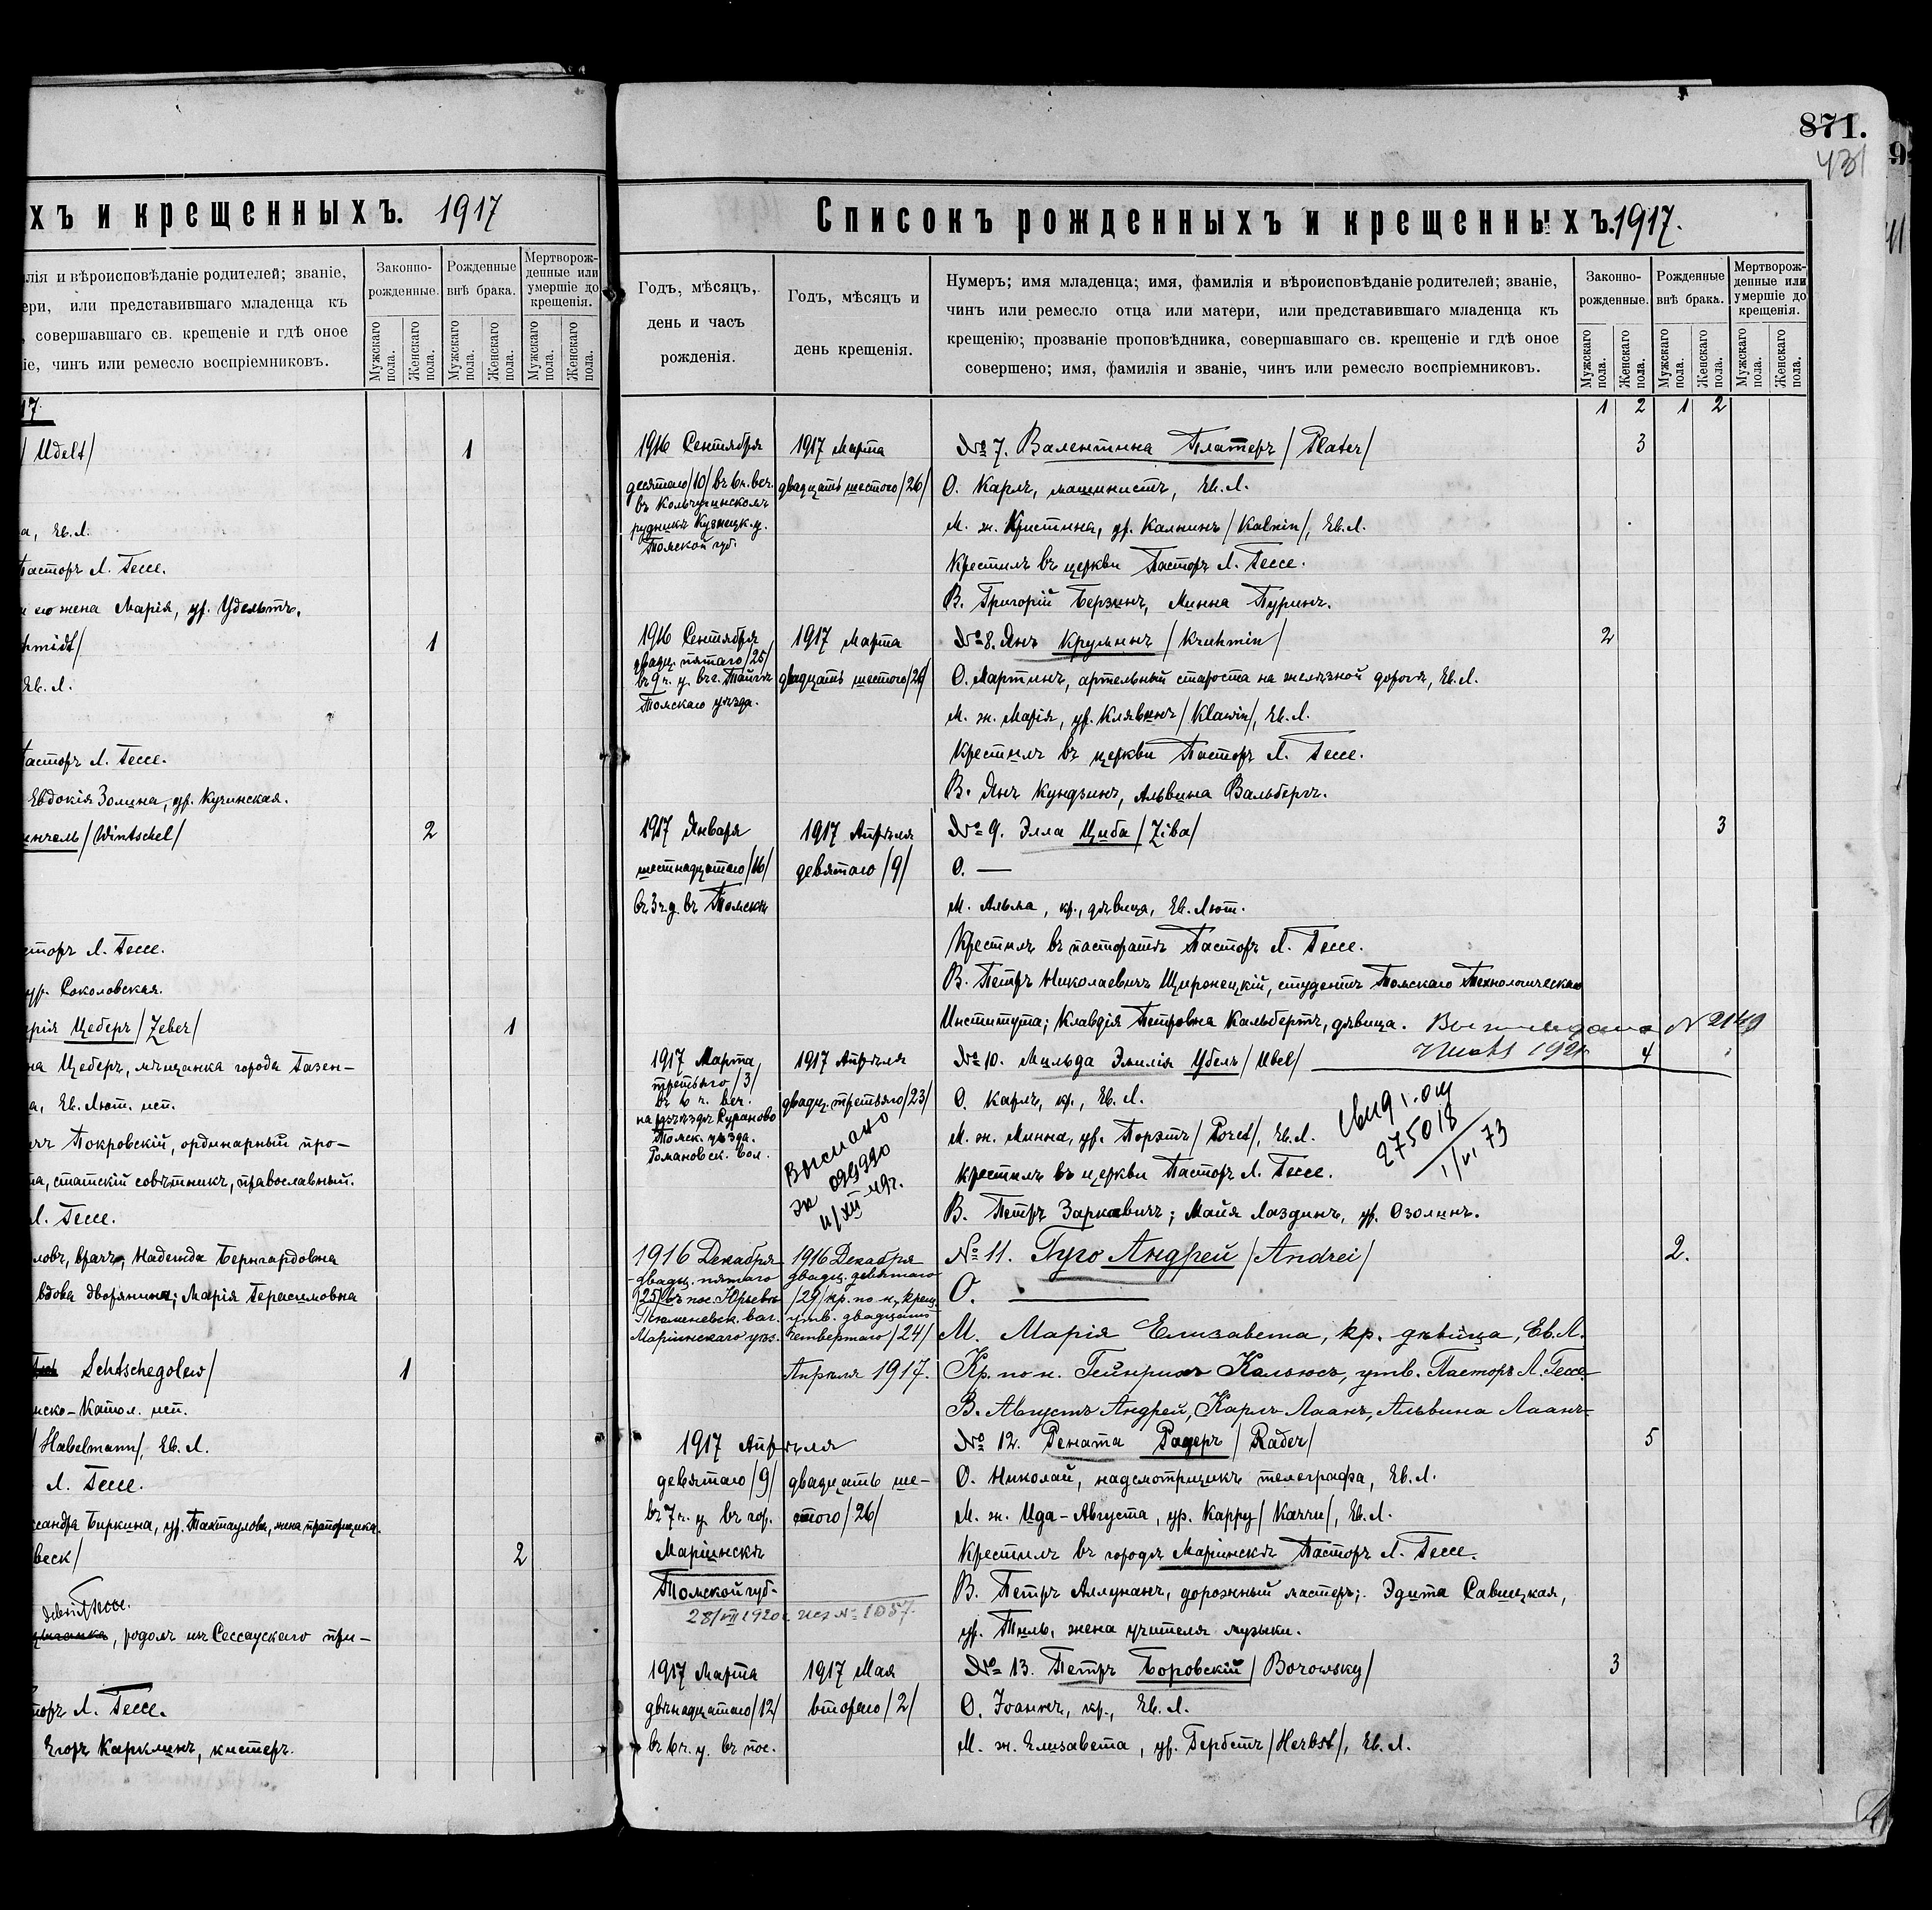 хъ и крещенныхъ. 1917
лія и вѣроисповѣданіе родителей; званіе,
ери, или представившаго младенца къ
, совершавшаго св. крещеніе и гдѣ оное
іе, чинъ или ремесло воспріемниковъ.
Законно-
рожденные.
Рожденные
внѣ брака.
Мертворож-
денные или
умершіе до
крещенія.
Мужскаго
пола.
Женскаго
пола.
Мужскаго
пола.
Женскаго
пола.
Мужскаго
пола.
Женскаго
пола.
17.
/ Udelt/ 1
а, Ев.Л.
Пасторъ Л. Гессе.
и его жена Марія, ур. Удельтъ.
hmidt/ 1
Ев. Л.
Пасторъ Л. Гессе.
Евдокія Золина, ур. Кучинская.
инчель/Wintschel/ 2
сторъ Л. Гессе.
ур. Соколовская.
рія Цеберъ/Zeber/ 1
на Цеберъ, мѣщанка города Газен-
а, Ев. Лют. исп.
чъ Покровскій, ординарный про-
а, статскій совѣтникъ, православный.
Л. Гессе.
ловъ, врачъ, Надежда Бернгардовна
вдова дворянина; Марія Герасимовна
Schtschegolew/ 1
мско-Катол. исп.
/Habelmann/, Ев. Л.
Л. Гессе.
ксандра Биркина, ур. Тахтаулова, жена прапорщика.
beck/ 2
, родомъ изъ Сессаускаго при-
торъ Л. Гессе.
Егоръ Карклинъ, кистеръ.
871.
431
Списокъ рожденныхъ и крещенныхъ. 1917.
Годъ, мѣсяцъ,
день и часъ
рожденія.
Годъ, мѣсяцъ и
день крещенія.
Нумеръ; имя младенца; имя, фамилія и вѣроисповѣданіе родителей; званіе,
чинъ или ремесло отца или матери, или представившаго младенца къ
крещенію; прозваніе проповѣдника, совершавшаго св. крещеніе и гдѣ оное
совершено; имя, фамилія и званіе, чинъ или ремесло воспріемниковъ.
Законно-
рожденные.
Рожденные
внѣ брака.
Мертворож-
денные или
умершіе до
крещенія.
Мужскаго
пола.
Женскаго
пола.
Мужскаго
пола.
Женскаго
пола.
Мужскаго
пола.
Женскаго
пола.
1 2 1 2
1916 Сентября
десятаго/10/ въ 6ч. веч.
въ Кольчугинскомъ
рудникѣ Кузнецк. у.
Томской губ.
1917 Марта
двадцать шестого/26/
№ 7. Валентина Платеръ/Plater/ 3
О. Карлъ, машинистъ, Ев.Л.
М. ж. Кристина, ур. Калнинъ/Kalnin/, Ев.Л.
Крестилъ въ церкви Пасторъ Л. Гессе.
В. Григорій Берзинъ, Минна Пуринъ.
1916 Сентября
двадц. пятаго/25/
въ 9 ч. у. въ с. Тайгѣ
Томскаго уѣзда.
1917 Марта
двадцать шестого/26/
№ 8. Янъ Круминъ/Kruhmin/ 2
О. Мартинъ, артельный староста на желѣзной дорогѣ, Ев.Л.
М. ж. Марія, ур. Клявинъ/Klawin/, Ев.Л.
Крестилъ въ церкви Пасторъ Л. Гессе.
В. Янъ Кундзинъ, Альвина Вальбергъ.
1917 Января
шестнадцатаго/16/
въ 3 ч. д. въ Томскѣ
1917 Апрѣля
девятаго/9/
№ 9. Элла Циба/Ziba/ 3
О. —
М. Альма, кр., дѣвица, Ев. Лют.
Крестилъ въ пасторатѣ Пасторъ Л. Гессе.
В. Петръ Николаевичъ Щиронецкій, студентъ Томскаго Технологическаго
Института; Клавдія Петровна Кальбертъ, дѣвица.
N 2149
1917 Марта
третьяго/3/
въ 6 ч. веч.
на разъѣздѣ Сураново
Томск. уѣзда.
Романовск. вол.
1917 Апрѣля
двадц. третьяго/23/
Выслано
099990
11/XII-49г.
№ 10. Мильда Эмилія Убель/Ubel/ 4
О. Карлъ, кр., Ев. Л.
М. ж. Минна, ур. Порэтъ/Poret/, Ев.Л.
крестилъ въ церкви Пасторъ Л. Гессе.
В. Петръ Заркевичъ; Майя Лаздинъ, ур. Озолинъ.
275018
1/VI 73
1916 Декабря
двадц. пятаго
/25/ въ пос. Юрьевкѣ
Тюменевск. вол.
Маріинскаго уѣз.
1916 Декабря
двадц. девятаго
/29/ кр. по н. крещ.
утв. двадцать
четвертаго/24/
Апрѣля 1917.
№ 11. Гуго Андрей/Andrei/ 2.
О. —
М. Марія Елизавета, кр. дѣвица, Ев.Л.
Кр. по н. Гейнрихъ Кальюсъ, утв. Пасторъ Л. Гессе
В. Августъ Андрей, Карлъ Лаанъ, Альвина Лаанъ
1917 Апрѣля
девятаго/9/
въ 7 ч. у. въ гор.
Маріинскѣ
Томской губ.
28/VII 1920г. исх № 1057.
двадцать ше-
стого/26/
№ 12. Рената Радеръ/Rader/ 5
О. Николай, надсмотрщикъ телеграфа, Ев.Л.
М. ж. Ида-Августа, ур. Карру/Karru/, Ев.Л.
Крестилъ въ городѣ Маріинскѣ Пасторъ Л. Гессе.
В. Петръ Аллунанъ, дорожный мастеръ; Эдита Савицкая,
ур. Тиль, жена учителя музыки.
1917 Марта
двѣнадцатаго/12/
въ 6 ч. у. въ пос.
1917 Мая
второго/2/
№ 13. Петръ Боровскій/Borowsky/ 3
О. Іоаннъ, кр., Ев. Л.
М. ж. Елизавета, ур. Гербстъ/Herbst/, Ев.Л.